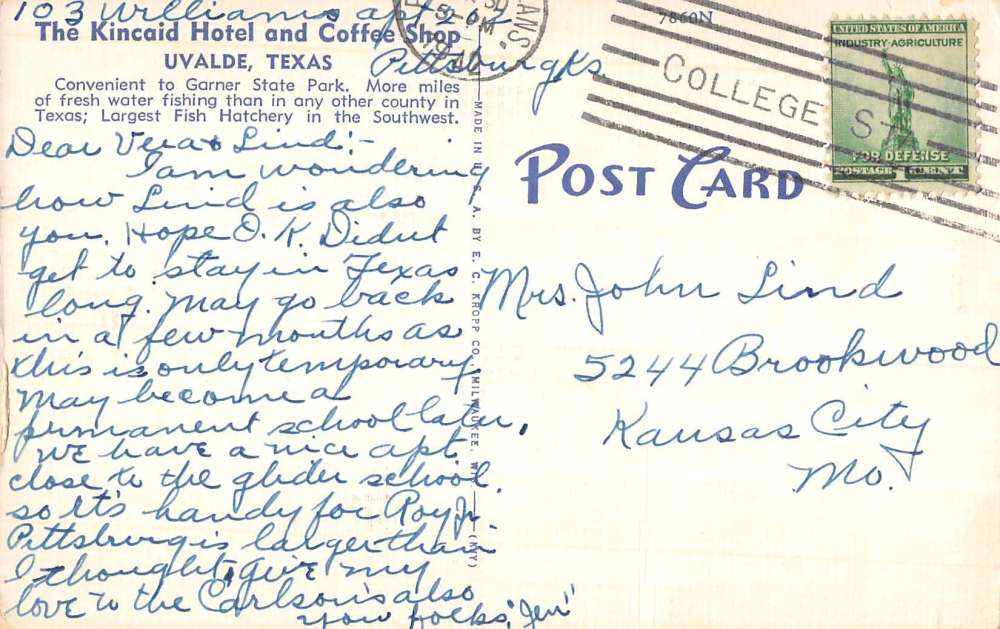 103 Williams apt 202
The Kincaid Hotel and Coffee Shop
UVALDE, TEXAS
Pittsburg Ks.
Convenient to Garner State Park. More miles
of fresh water fishing than in any other county in
Texas; Largest Fish Hatchery in the Southwest.
Dear Vera & Lind:-
I am wondering
how Lind is also
you. Hope O.K. Didnt
get to stay in Texas
long. May go back
in a few months as
this is only temporary
May become a
permanent school later.
We have a nice apt.
close to the glider school.
so it's handy for Roy Jr.
Pittsburg is larger than
I thought, give my
love to the Carlson's also
you folks, "Jen"
MADE IN U. S. A. BY E. C. KROPP CO., MILWAUKEE, WIS.
7860N
POST CARD
COLLEGE ST
UNITED STATES OF AMERICA
INDUSTRY·AGRICULTURE
FOR DEFENSE
POSTAGE 1 CENT
Mrs. John Lind
5244 Brookwood
Kansas City
Mo.